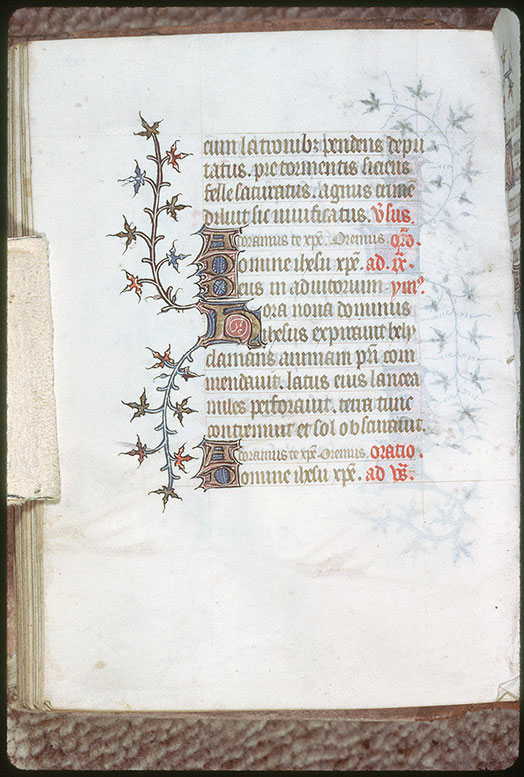 cum latronibꝫ pendens depu
tatus. pre tormentis siciens
felle saturatus. agnus crime
diluit sic uiuificatus. v̄sus.
Adoramus te xp̄e. Oremus or̄o.
Domine ihesu xp̄e. ad ix.
Deus in adiutorium. ymꝰ.
Hora nona dominus
ihesus expirauit hely
clamans animam pr̄i com
mendauit. latus eius lancea
miles perforauit. terra tunc
contremuit et sol obscurauit.
Adoramus te xp̄e. Oremus. oratio.
Domine ihesu xp̄e. ad vs̄.